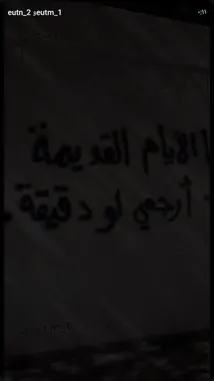 eutn_2 و eutm_1
الايام القديمة
أرجعي لو دقيقة